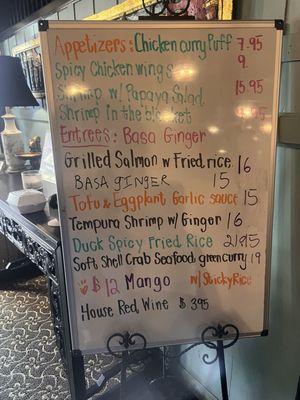 Appetizers: Chicken curry Puff 7.95
Spicy Chicken wings 9.
Shrimp w/ Papaya Salad 15.95
Shrimp in the blanket .95
Entrees: Basa Ginger
Grilled Salmon w Fried rice 16
BASA GINGER 15
Tofu & Eggplant Garlic sauce 15
Tempura Shrimp w/ Ginger 16
Duck Spicy Fried Rice 21.95
Soft Shell Crab Seafood green curry 19
$12 Mango w/ Sticky Rice
House Red, Wine $ 3.95